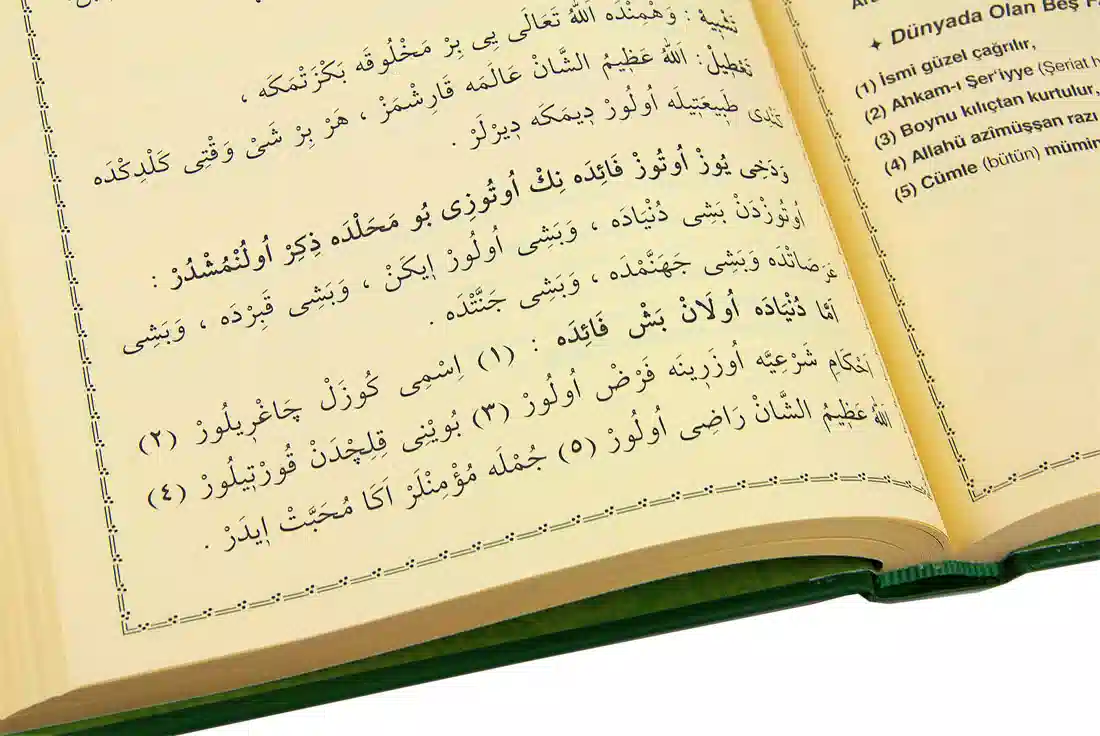 تَشْبِيهْ : وَهْمِنْدَه اَللّٰهُ تَعَالَى يِى بِرْ مَخْلُوقَه بَكْزَتْمَكَه ،
تَعْطِيلْ : اَللّٰهُ عَظِيمُ الشَّانْ عَالَمَه قَارِشْمَزْ ، هَرْ بِرْ شَىْ وَقْتِى كَلْدِكْدَه
كَنْدِى طَبِيعَتِيلَه اُولُورْ دِيمَكَه دِيرْلَرْ .
وَدَخِى يُوزْ اُوتُوزْ فَائِدَه نِكْ اُوتُوزِى بُو مَحَلْدَه ذِكِرْ اُولُنْمُشْدُرْ :
اُوتُوزْدَنْ بَشِى دُنْيَادَه ، وَبَشِى اُولُورْ اِيكَنْ ، وَبَشِى قَبِرْدَه ، وَبَشِى
عَرَصَاتْدَه وَبَشِى جَهَنَّمْدَه ، وَبَشِى جَنَّتْدَه .
اَمَّا دُنْيَادَه اُولَانْ بَشْ فَائِدَه : (١) اِسْمِى كُوزَلْ چَاغْرِيلُورْ (٢)
اَحْكَامِ شَرْعِيَّه اُوزَرِينَه فَرْضْ اُولُورْ (٣) بُويْنِى قِلِچْدَنْ قُورْتِيلُورْ (٤)
اَللّٰهُ عَظِيمُ الشَّانْ رَاضِى اُولُورْ (٥) جُمْلَه مُؤْمِنْلَرْ اَكَا مُحَبَّتْ اِيدَرْ .
✦ Dünyada Olan Beş
(1) İsmi güzel çağrılır,
(2) Ahkam-ı Şer'iyye (Şeriat
(3) Boynu kılıçtan kurtulur,
(4) Allahü azîmüşşan razı
(5) Cümle (bütün) mümin